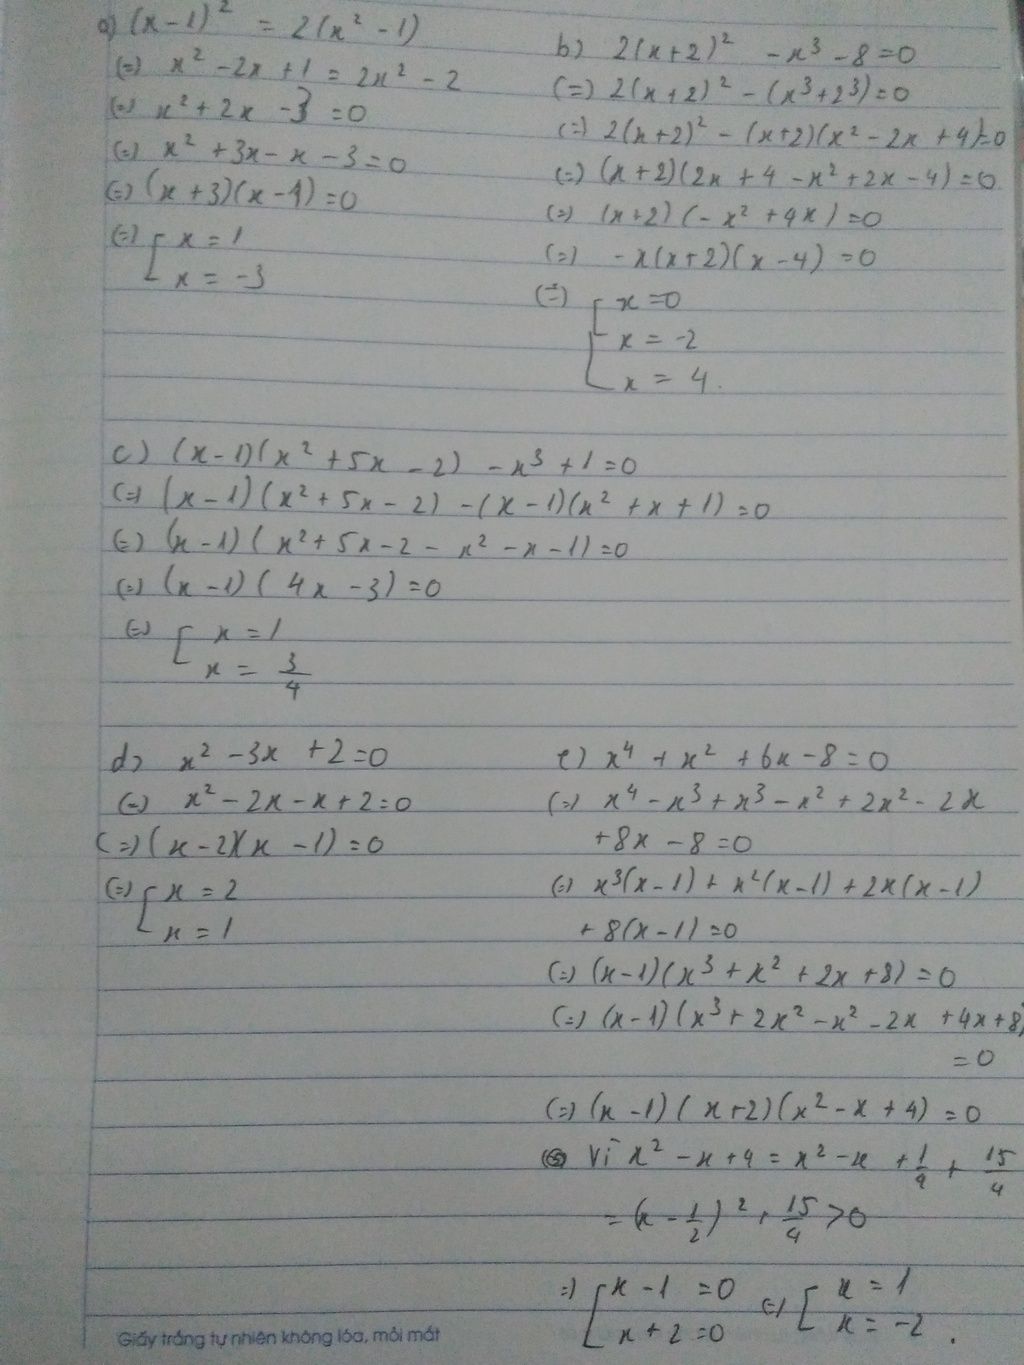 a) (x-1)² = 2(x² -1)
(=) x² -2x +1 = 2x² - 2
(=) x² + 2x -3 = 0
(=) x² + 3x - x - 3 = 0
(=) (x + 3)(x - 1) = 0
(=) [ x = 1
x = -3
b) 2(x+2)² - x³ - 8 = 0
(=) 2(x+2)² - (x³+2³) = 0
(=) 2(x+2)² - (x+2)(x² - 2x + 4) = 0
(=) (x+2)(2x + 4 - x² + 2x - 4) = 0
(=) (x+2)(-x² + 4x) = 0
(=) -x(x+2)(x-4) = 0
(=) [ x = 0
x = -2
x = 4.
c) (x-1)(x² + 5x - 2) - x³ + 1 = 0
(=) (x-1)(x² + 5x - 2) - (x-1)(x² + x + 1) = 0
(=) (x-1)(x² + 5x - 2 - x² - x - 1) = 0
(=) (x-1)(4x - 3) = 0
(=) [ x = 1
x = 3/4
d) x² - 3x + 2 = 0
(=) x² - 2x - x + 2 = 0
(=) (x - 2)(x - 1) = 0
(=) [ x = 2
x = 1
e) x⁴ + x² + 6x - 8 = 0
(=) x⁴ - x³ + x³ - x² + 2x² - 2x
+ 8x - 8 = 0
(=) x³(x-1) + x²(x-1) + 2x(x-1)
+ 8(x-1) = 0
(=) (x-1)(x³ + x² + 2x + 8) = 0
(=) (x-1)(x³ + 2x² - x² - 2x + 4x + 8)
= 0
(=) (x-1)(x+2)(x² - x + 4) = 0
Vì x² - x + 4 = x² - x + 1/4 + 15/4
= (x - 1/2)² + 15/4 > 0
=) [ x - 1 = 0 (=) [ x = 1
x + 2 = 0 x = -2 .
Giấy trắng tự nhiên không lóa, mỏi mắt